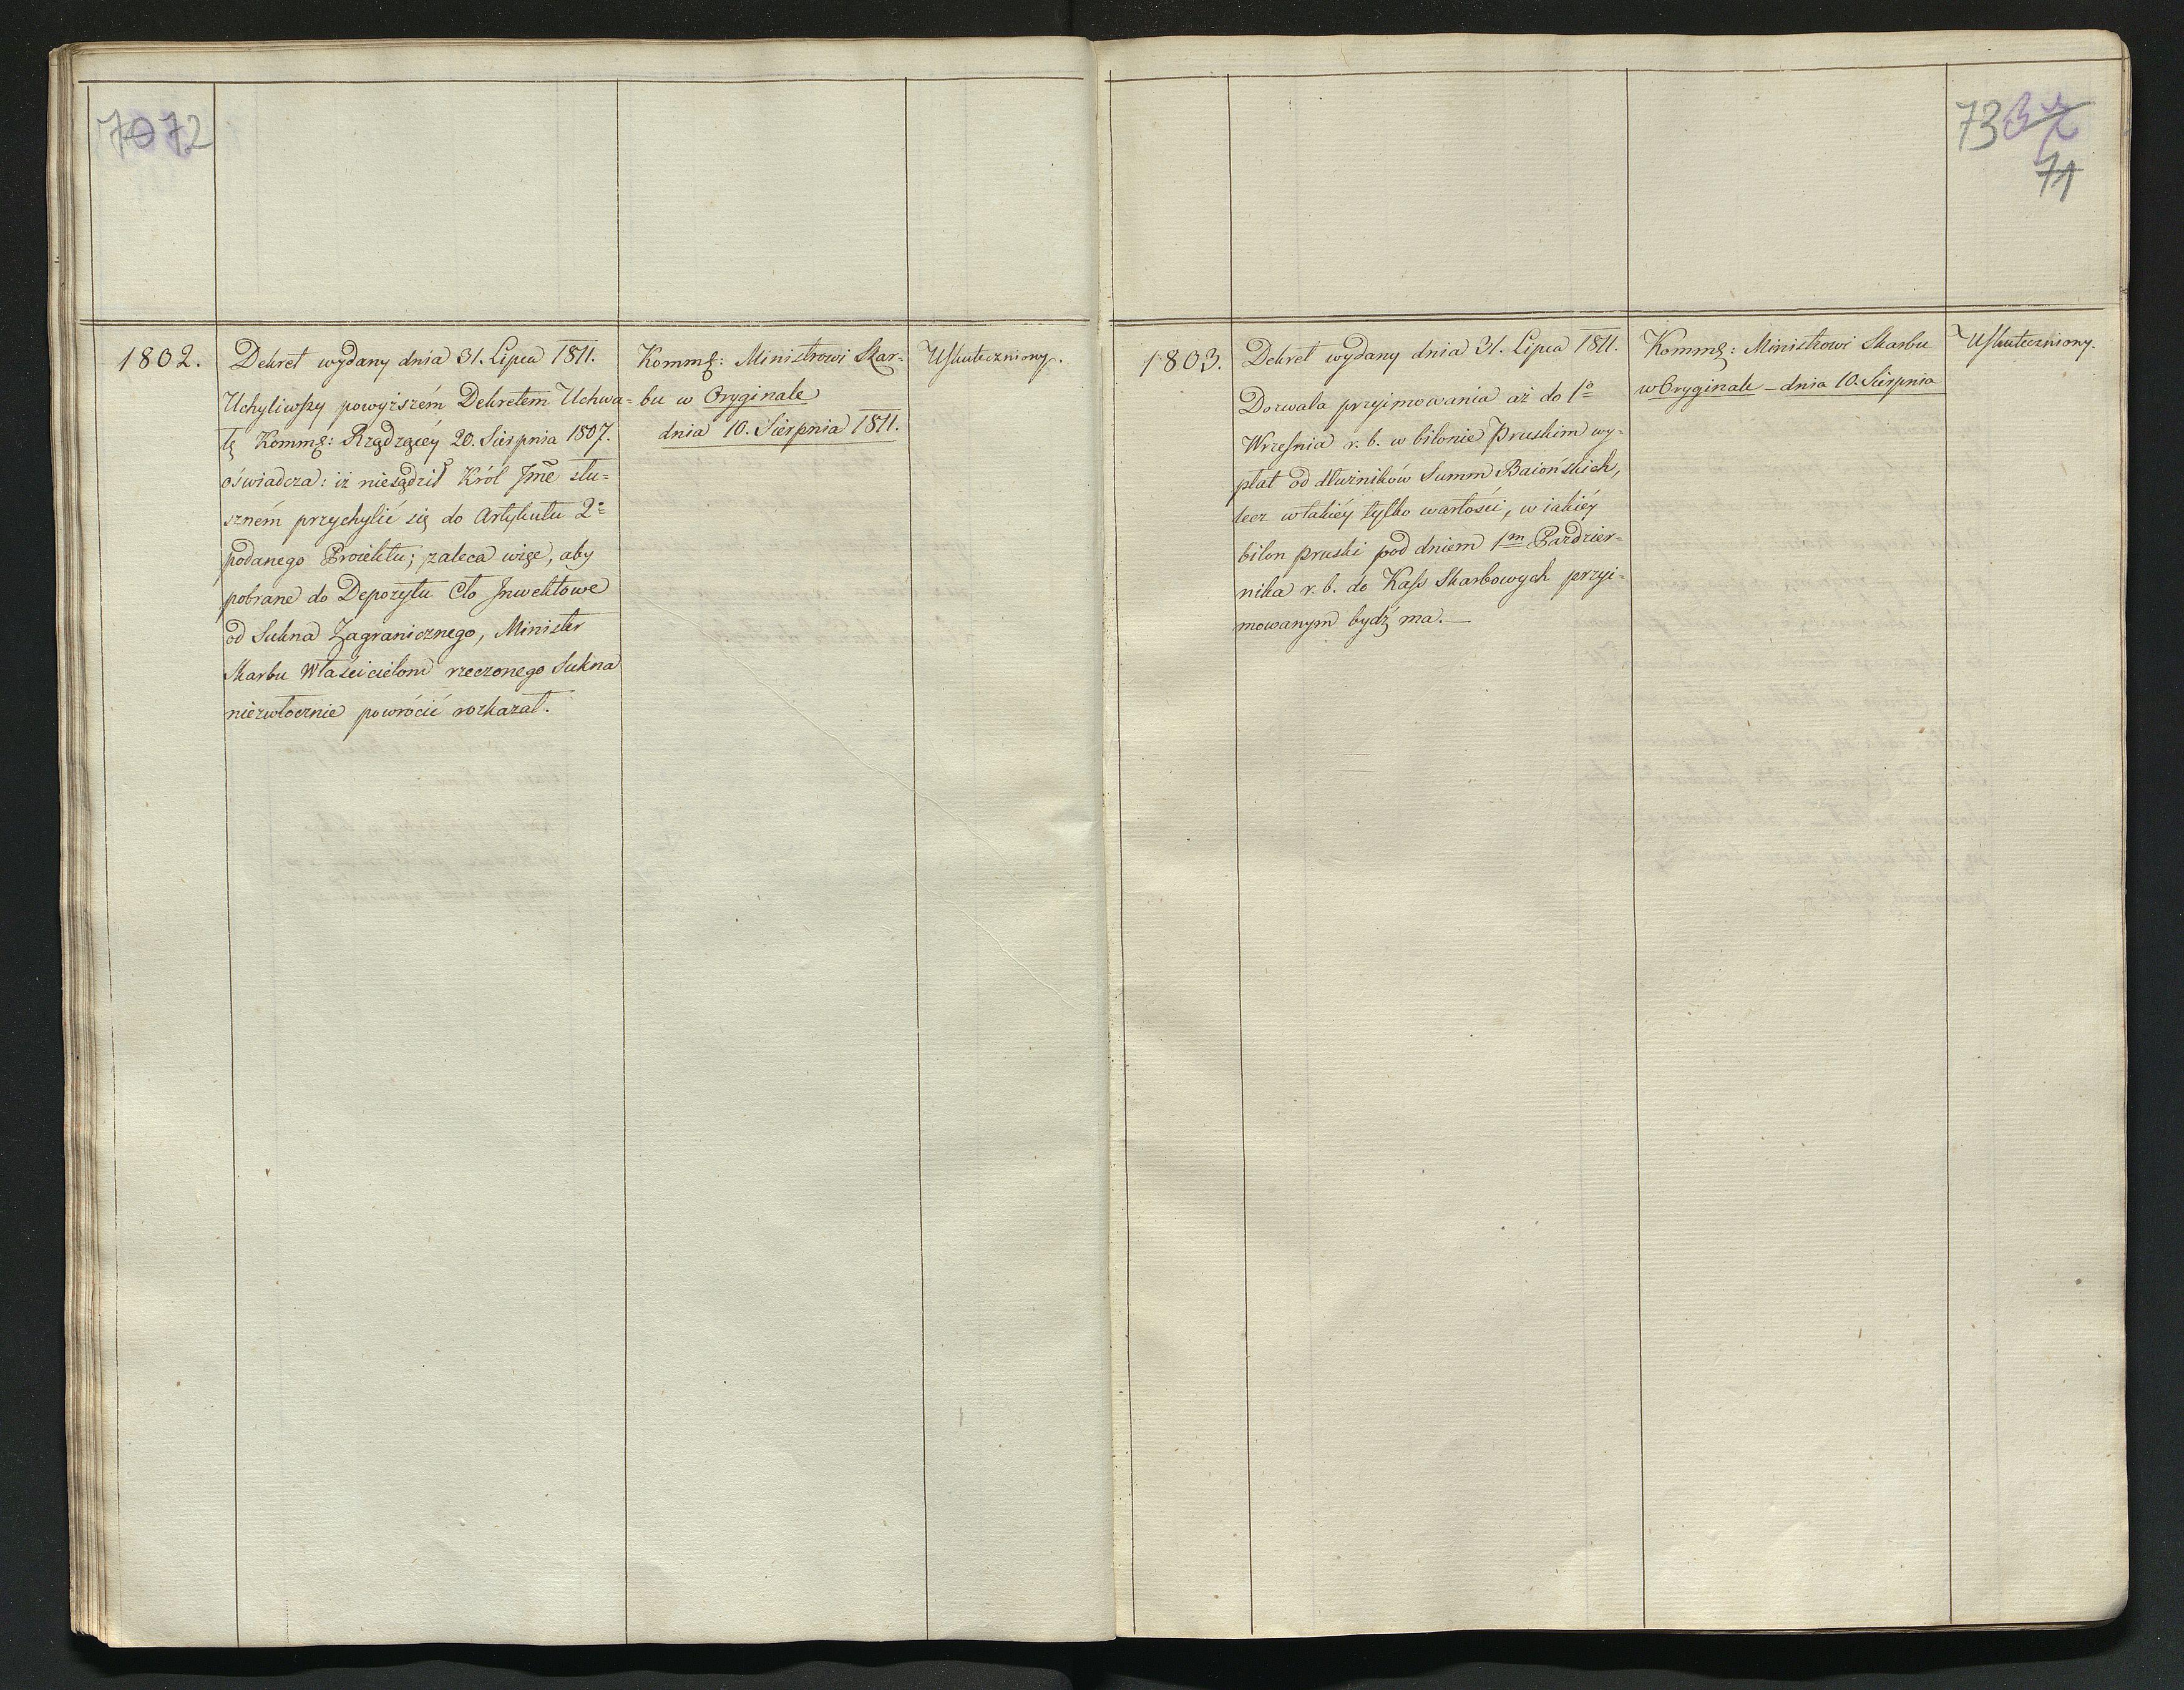 70 72
1802.
Dekret wydany dnia 31. Lipca 1811.
Uchyliwszy powyższém Dekretem Uchwa-
łę Kommę: Rządzącéy 20. Sierpnia 1807.
oświadcza: iż niesądził Król Jme słu-
szném przychylić się do Artykułu 2º
podanego Proiektu; zaleca więc, aby
pobrane do Depozytu Cło Inwektowe
od Sukna Zagranicznego, Minister
Skarbu Właścicielom rzeczonego Sukna
niezwłocznie powrócić rozkazał.
Kommę: Ministrowi Skar-
bu w Oryginale
dnia 10. Sierpnia 1811.
Uskuteczniony.
73
71
1803.
Dekret wydany dnia 31. Lipca 1811.
Dozwala przyimowania aż do 1º
Września r. b. w bilonie Pruskim wy-
płat od dłużników Summ Baiońskich,
lecz w takiéy tylko wartości, w iakiéy
bilon pruski pod dniem 1m Paździer-
nika r. b. do Kass Skarbowych przyi-
mowanym bydź ma. —
Kommę: Ministrowi Skarbu
w Oryginale – dnia 10. Sierpnia
Uskuteczniony.